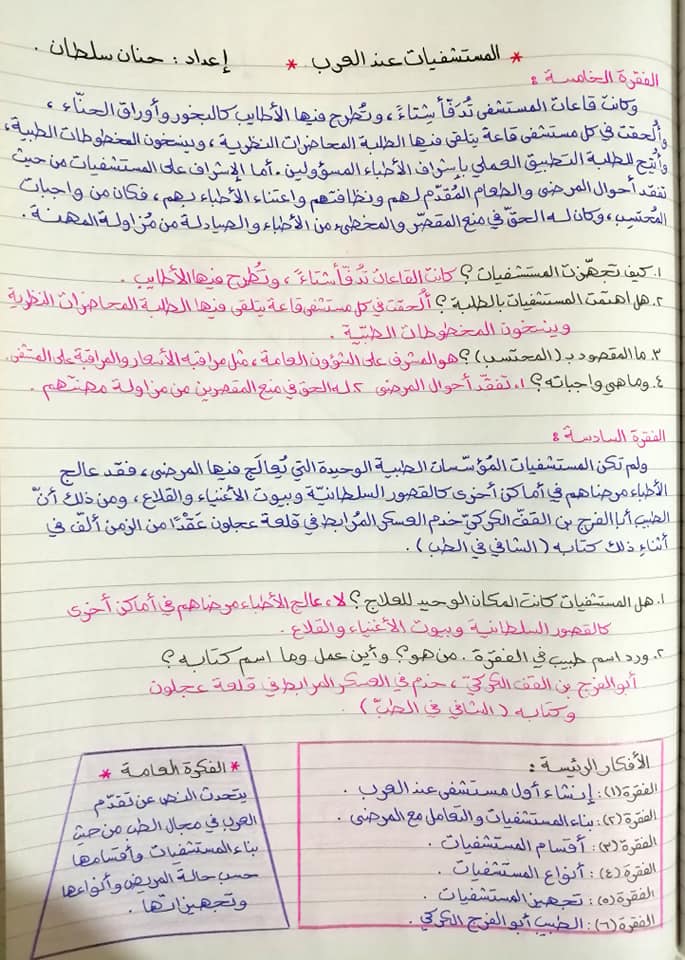 * المستشفيات عند العرب * إعداد : حنان سلطان .
الفقرة الخامسة :
وكانت قاعات المستشفى تُدَفّأ شِتاءً ، وتُطرح فيها الأطايب كالبخور وأوراق الحنّاء ،
وأُلحقت في كل مستشفى قاعة يتلقى فيها الطلبة المحاضرات النظرية ، وينسخون المخطوطات الطبية ،
وأُتيح للطلبة التطبيق العملي بإشراف الأطباء المسؤولين . أما الإشراف على المستشفيات من حيث
تفقد أحوال المرضى والطعام المُقدّم لهم ونظافتهم واعتناء الأطباء بهم ، فكان من واجبات
المُحتسِب ، وكان له الحقّ في منع المقصّر والمخطىء من الأطباء والصيادلة من مُزاولة المهنة .
١. كيف تجهّزت المستشفيات ؟ كانت القاعات تُدّفأ شتاءً ، وتُطرح فيها الأطايب .
٢. هل اهتمت المستشفيات بالطلبة ؟ أُلحقت في كل مستشفى قاعة يتلقى فيها الطلبة المحاضرات النظرية
وينسخون المخطوطات الطبيّة .
٣. ما المقصود بـ (المحتسب) ؟ هو المشرف على الشؤون العامة ، مثل مراقبة الأسعار والمراقبة على المشفى .
٤. وما هي واجباته ؟ ١. تفقّد أحوال المرضى ٢. له الحق في منع المقصرين من مزاولة مهنتهم .
الفقرة السادسة :
ولم تكن المستشفيات المُؤسّسات الطبية الوحيدة التي يُعالَج فيها المرضى ، فقد عالج
الأطباء مرضاهم في أماكن أخرى كالقصور السلطانيّة وبيوت الأغنياء والقلاع ، ومن ذلك أنّ
الطبيب أبا الفرج بن القفّ الكركيّ خدم العسكر المُرابط في قلعة عجلون عَقْدًا من الزمن ألّف في
أثناء ذلك كتابه (الشافي في الطب) .
١. هل المستشفيات كانت المكان الوحيد للعلاج ؟ لا ، عالج الأطباء مرضاهم في أماكن أخرى
كالقصور السلطانية وبيوت الأغنياء والقلاع .
٢. ورد اسم طبيب في الفقرة . من هو ؟ وأين عمل وما اسم كتابه ؟
أبو الفرج بن القف الكركي ، خدم في العسكر المرابط في قلعة عجلون
وكتابه (الشافي في الطبّ) .
الأفكار الرئيسة :
الفقرة (١) : إنشاء أول مستشفى عند العرب .
الفقرة (٢) : بناء المستشفيات والتعامل مع المرضى .
الفقرة (٣) : أقسام المستشفيات .
الفقرة (٤) : أنواع المستشفيات .
الفقرة (٥) : تجهيز المستشفيات .
الفقرة (٦) : الطبيب أبو الفرج الكركي .
* الفكرة العامة *
يتحدث النص عن تقدّم
العرب في مجال الطب من حيث
بناء المستشفيات وأقسامها
حسب حالة المريض وأنواعها
وتجهيزاتها .